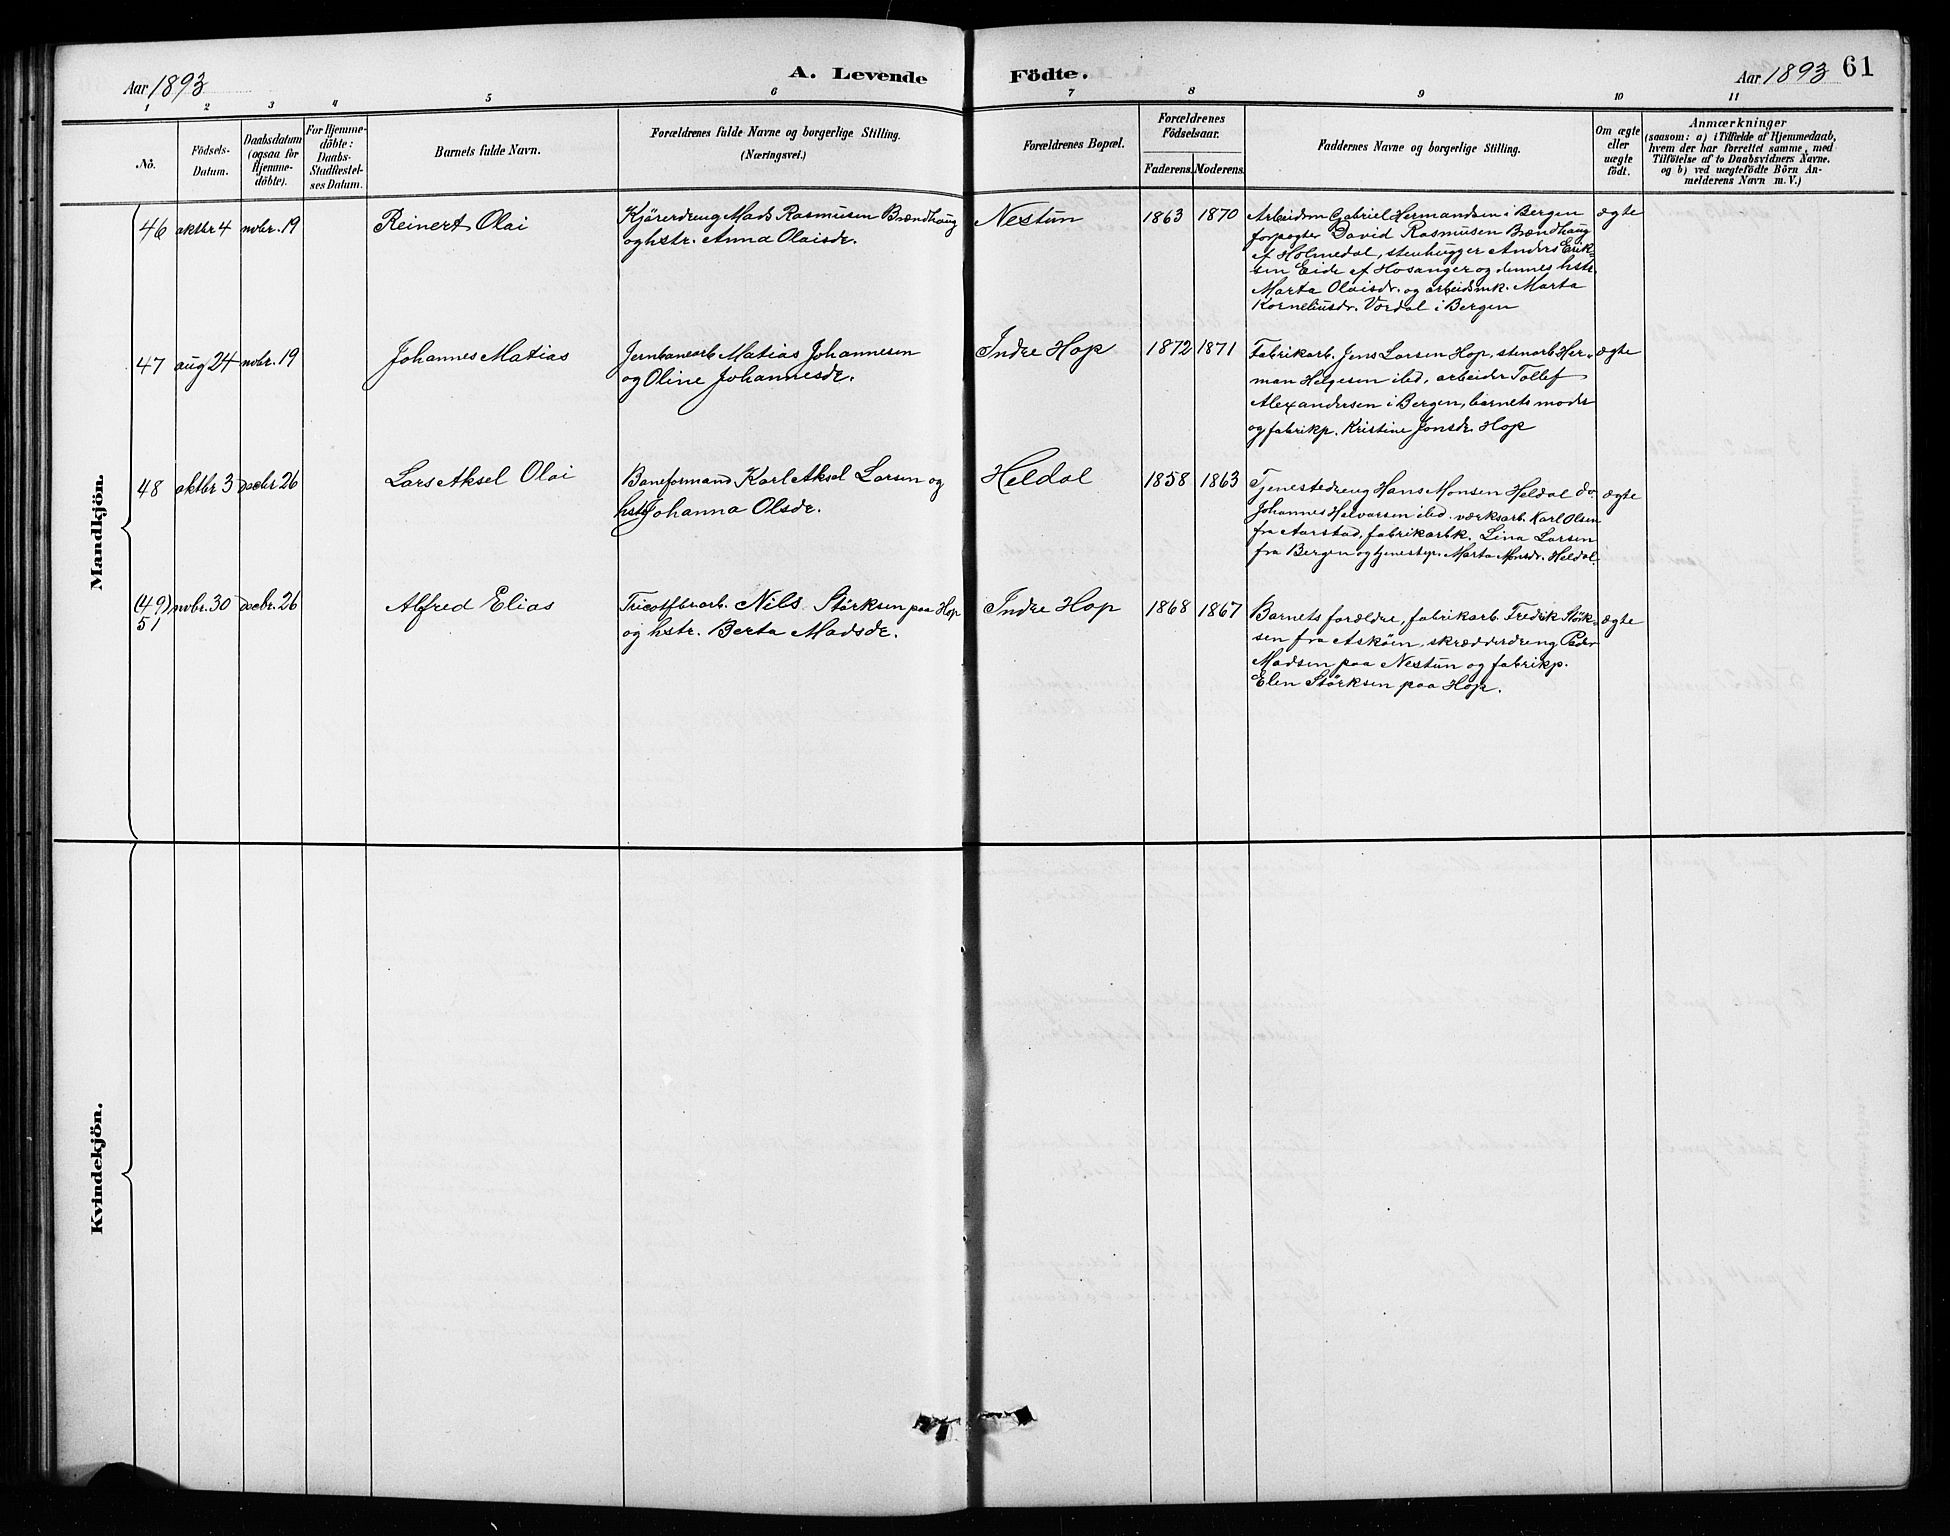 Aar 1893
A. Levende
Födte.
Aar 1893 61
1 2 3 4 5 6 7 8 9 10 11
No.
Födsels-
Datum.
Daabsdatum
(ogsaa for
Hjemme-
döbte).
For Hjemme-
döbte:
Daabs-
Stadfæstel-
ses Datum.
Barnets fulde Navn.
Forældrenes fulde Navne og borgerlige Stilling.
(Næringsvei.)
Forældrenes Bopæl.
Forældrenes
Födselsaar.
Faderens. Moderens.
Faddernes Navne og borgerlige Stilling.
Om ægte
eller
uægte
födt.
Anmærkninger
(saasom: a) i Tilfælde af Hjemmedaab,
hvem der har forrettet samme, med
Tilföielse af to Daabsvidners Navne.
og b) ved uægtefödte Börn An-
melderens Navn m. V.)
Mandkjön.
46 oktbr 4 novbr. 19
Reinert Olai
Kjörerdreng Mads Rasmusen Brændhaug
og hstr. Anna Olaisdr.
Nestun
1863 1870
Arbeidsm Gabriel Hermandsen i Bergen
forpagter David Rasmusen Brændhaug
af Holmedal, stenhugger Anders Erik-
sen Eide af Hosanger og dennes hstr.
Marta Olaisdr. og arbeidsmk. Marta
Korneliusdr. Vordal i Bergen
ægte
47 aug 24 novbr. 19
Johannes Matias
Jernbanearb Matias Johannesen
og Oline Johannesdr.
Indre Hop
1872 1871
Fabrikarb. Jens Larsen Hop, stenarb Her-
man Helgesen ibd, arbeider Tollef
Alexandersen i Bergen, barnets moder
og fabrikp. Kristine Jonsdr Hop
ægte
48 oktbr 3 decbr 26
Lars Aksel Olai
Baneformand Karl Aksel Larsen og
hstr Johanna Olsdr.
Heldal
1858 1863
Tjenestedreng Hans Monsen Heldal do.
Johannes Halvorsen ibd. værksarb. Karl Olsen
fra Aarstad, fabrikarbk. Lina Larsen
fra Bergen og tjenestep. Marta Monsdr. Heldal.
ægte
(49)
51
novbr. 30 decbr. 26
Alfred Elias
Tricotfbrarb. Nils Störksen paa Hop
og hstr. Berta Madsdr.
Indre Hop
1868 1867
Barnets forældre, fabrikarb. Fredrik Störk-
sen fra Asköen, skrædderdreng Peder
Madsen paa Nestun og fabrikp.
Elen Störksen paa Hop.
ægte
Kvindekjön.